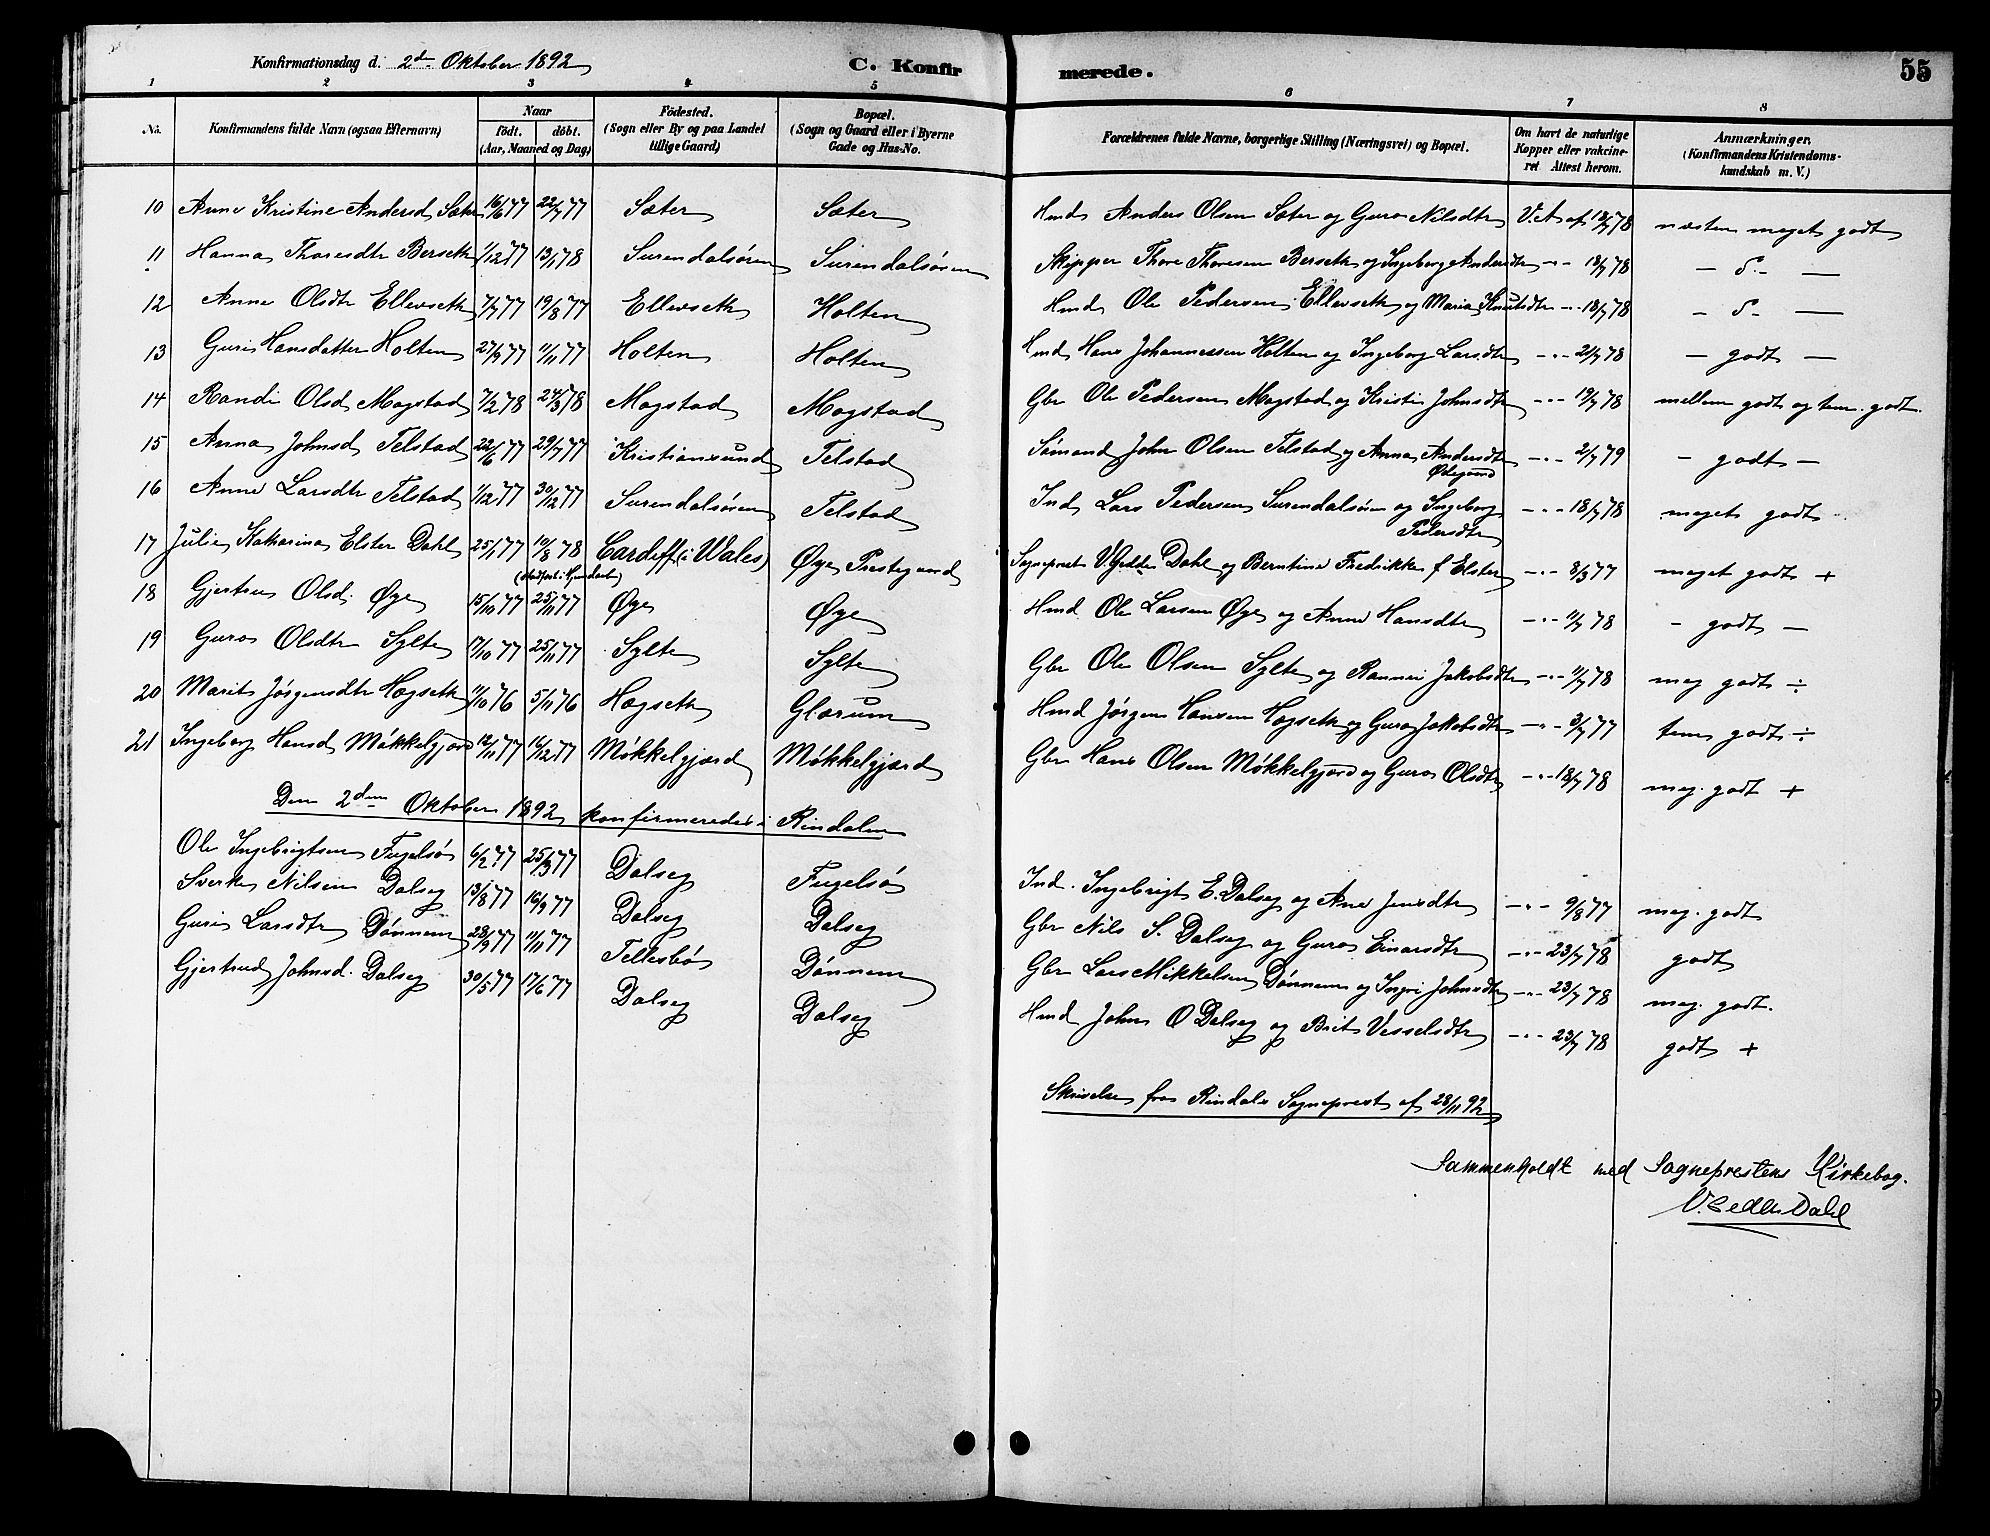 Konfirmationsdag d. 2den Oktober 1892
C. Konfirmerede.
55
1 2 3 4 5 6 7 8
No.
Konfirmandens fulde Navn (ogsaa Efternavn)
Naar
födt. döbt.
(Aar, Maaned og Dag)
Födested.
(Sogn eller By og paa Landet
tillige Gaard)
Bopæl.
(Sogn og Gaard eller i Byerne
Gade og Hus-No.
Forældrenes fulde Navne, borgerlige Stilling (Næringsvei) og Bopæl.
Om havt de naturlige
Kopper eller vakcine-
ret Attest herom.
Anmærkninger.
(Konfirmandens Kristendoms-
kundskab m. V.)
10 Anne Kristine Andersd Sæter 16/6 77 22/7 77 Sæter Sæter Hmd Anders Olsen Sæter og Guro Nilsdtr V.A af 18/7 78 næsten meget godt
11 Hanna Thoresdtr Berseth 1/12 77 13/1 78 Surendalsøren Surendalsøren Skipper Thore Thoresen Berseth og Ingeborg Andersdtr -"- 18/7 78 - d - —
12 Anne Olsdtr Ellevseth 7/7 77 19/8 77 Ellevseth Holten Hmd Ole Pedersen Ellevseth og Maria Knutsdtr -"- 18/7 78 - d - —
13 Guri Hansdatter Holten 27/9 77 11/11 77 Holten Holten Hmd Hans Johannessen Holten og Ingeborg Larsdtr -"- 21/7 78 - godt -
14 Randi Olsd Mogstad 7/2 78 24/3 78 Mogstad Mogstad Gbr Ole Pedersen Mogstad og Kristi Johnsdtr -"- 19/7 78 mellem godt og tem. godt.
15 Anna Johnsd Telstad 22/6 77 29/7 77 Kristiansund Telstad Sømand John Olsen Telstad og Anna Andersdtr -"- 2/7 79 - godt -
16 Anne Larsdtr Telstad 1/12 77 30/12 77 Surendalsøren Telstad Ind Lars Pedersen Surendalsøren og Ingeborg Pedersdtr -"- 18/7 78 meget godt
17 Julie Katharina Elster Dahl 25/1 77 10/8 78 Cardiff (i Wales) Øye Prestegaard Sognepræst V. Gedde Dahl og Berntine Fredrikke f Elster -"- 8/3 77 meget godt +
18 Gjertru Olsd. Øye 15/10 77 25/11 77 Øye Øye Hmd Ole Larsen Øye og Anne Hansdtr -"- 11/7 78 - godt -
19 Guro Olsdtr Sylte 17/10 77 25/11 77 Sylte Sylte Gbr Ole Olsen Sylte og Rannei Jakobsdtr -"- 11/7 78 meg godt ÷
20 Marit Jørgensdtr Hogseth 11/10 76 5/11 76 Hogseth Glærum Hmd Jørgen Hansen Hogseth og Guro Jakobsdtr -"- 3/7 77 tem godt ÷
21 Ingeborg Hansd Møkkelgjerd 12/11 77 16/12 77 Møkkelgjærd Møkkelgjærd Gbr Hans Olsen Møkkelgjerd og Guro Olsdtr -"- 18/7 78 meg. godt +
Den 2den Oktober 1892 konfirmerede i Rindalen
Ole Ingebrigtsen Fugelsø 6/2 77 25/3 77 Dalseg Fugelsø Ind. Ingebrigt E. Dalseg og Ane Jensdtr -"- 9/8 77 meg. godt
Sverke Nilsen Dalseg 13/8 77 16/9 77 Dalseg Dalseg Gbr Nils S. Dalseg og Guro Einarsdtr -"- 23/7 78 godt
Guri Larsdtr Dønnem 28/9 77 11/11 77 Tellesbø Dønnem Gbr Lars Mikkelsen Dønnem og Ingri Johnsdtr -"- 23/7 78 meg. godt.
Gjertrud Johnsd. Dalseg 30/5 77 17/6 77 Dalseg Dalseg Hmd John O Dalseg og Brit Vesselsdtr -"- 23/7 78 godt +
Skrivelse fra Rindals Sogneprest af 28/11 92
Sammenholdt med Sogneprestens Kirkebog.
V. Gedde Dahl